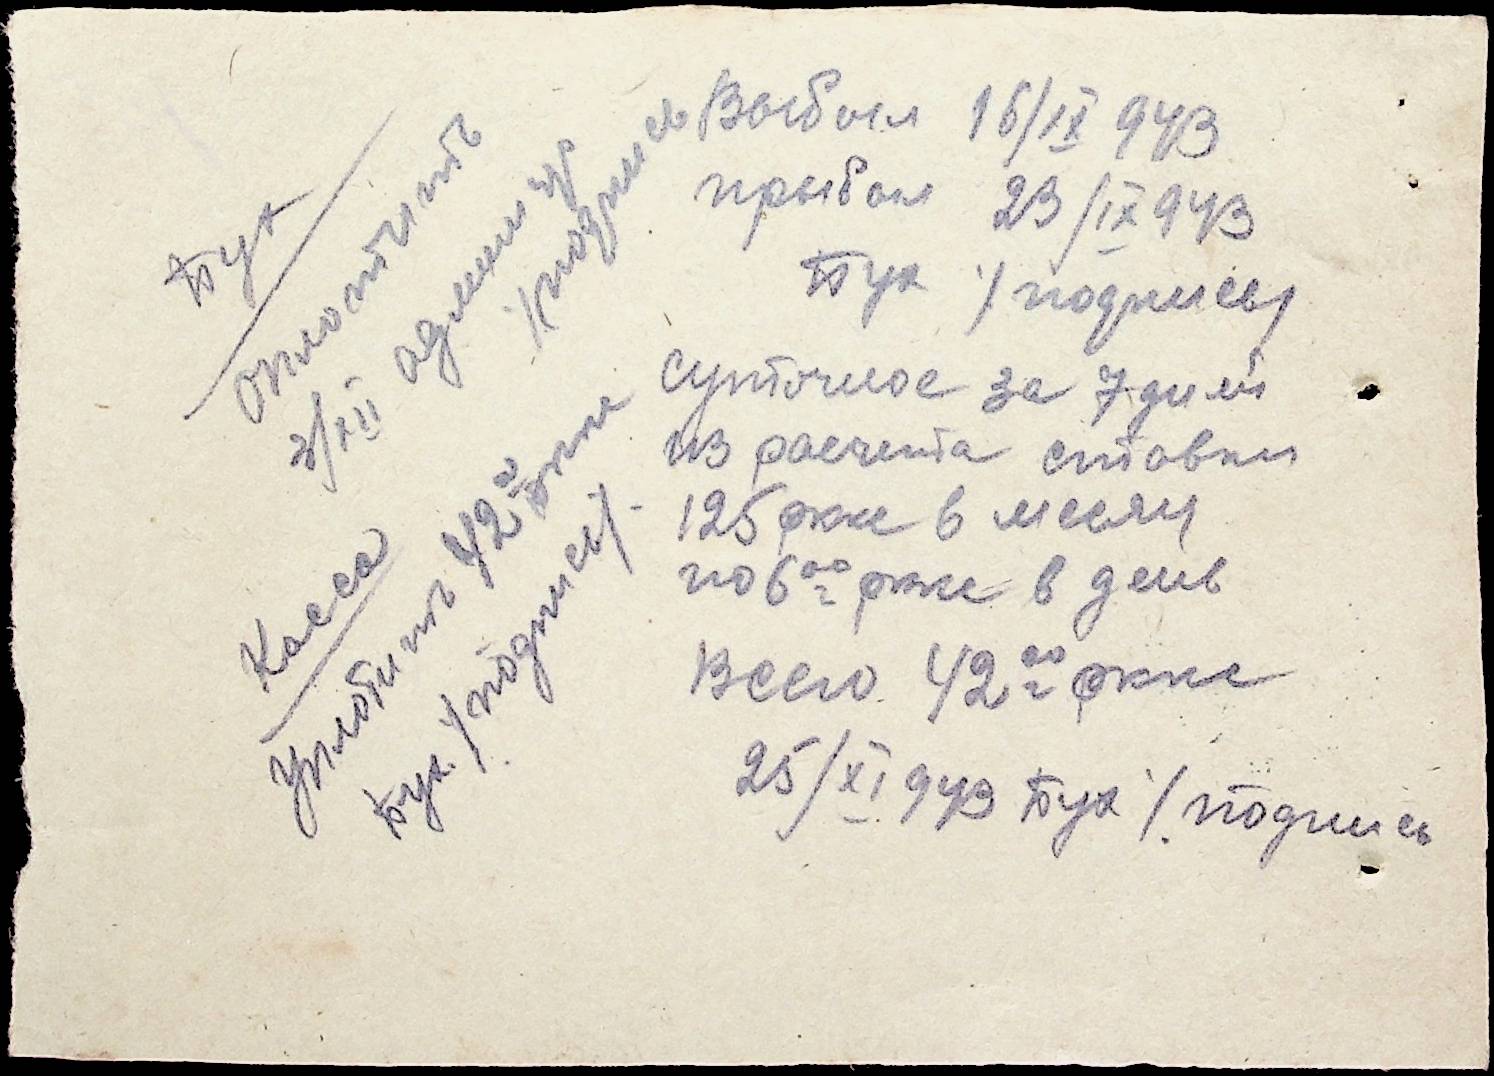 Бух
оплотить
3/XII админ уч
/ подпись
Касса
Уплотить 42 00 ркк
Бух. / подпись/.
Выбыл 16/IX 943
прыбыл 23/IX 943
Бух / подпись/
суточное за 7 дней
из расчета ставки
125 ркке в месяц
по 6 00 ркке в день
Всего 42 00 ркке
25/XI 943 Бух / подпись